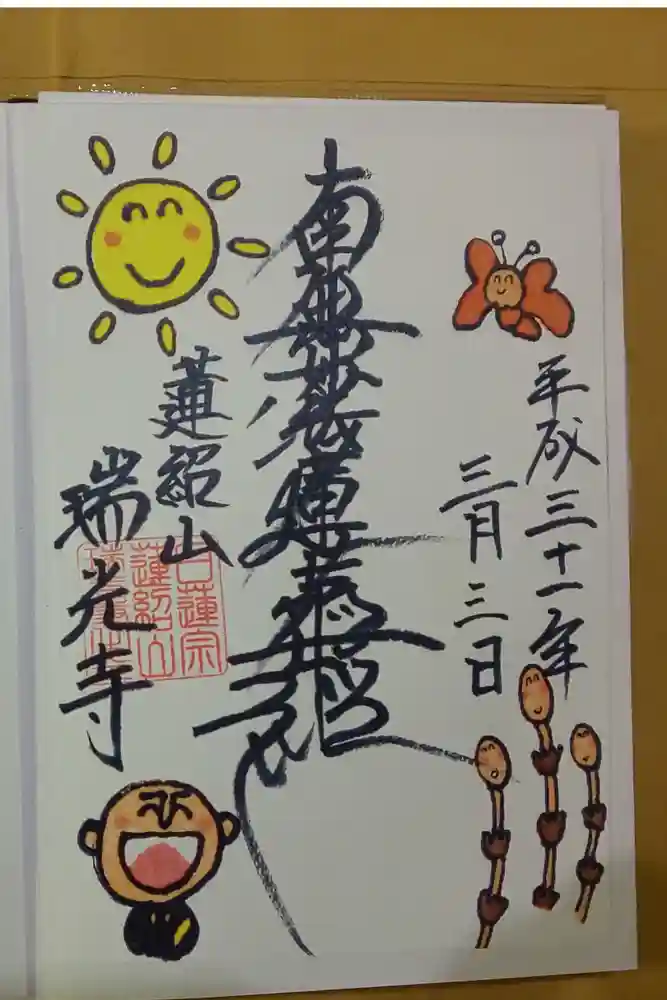 平成三十一年
三月三日
南無妙法蓮華経
蓮紹山
瑞光寺
日蓮宗
蓮紹山